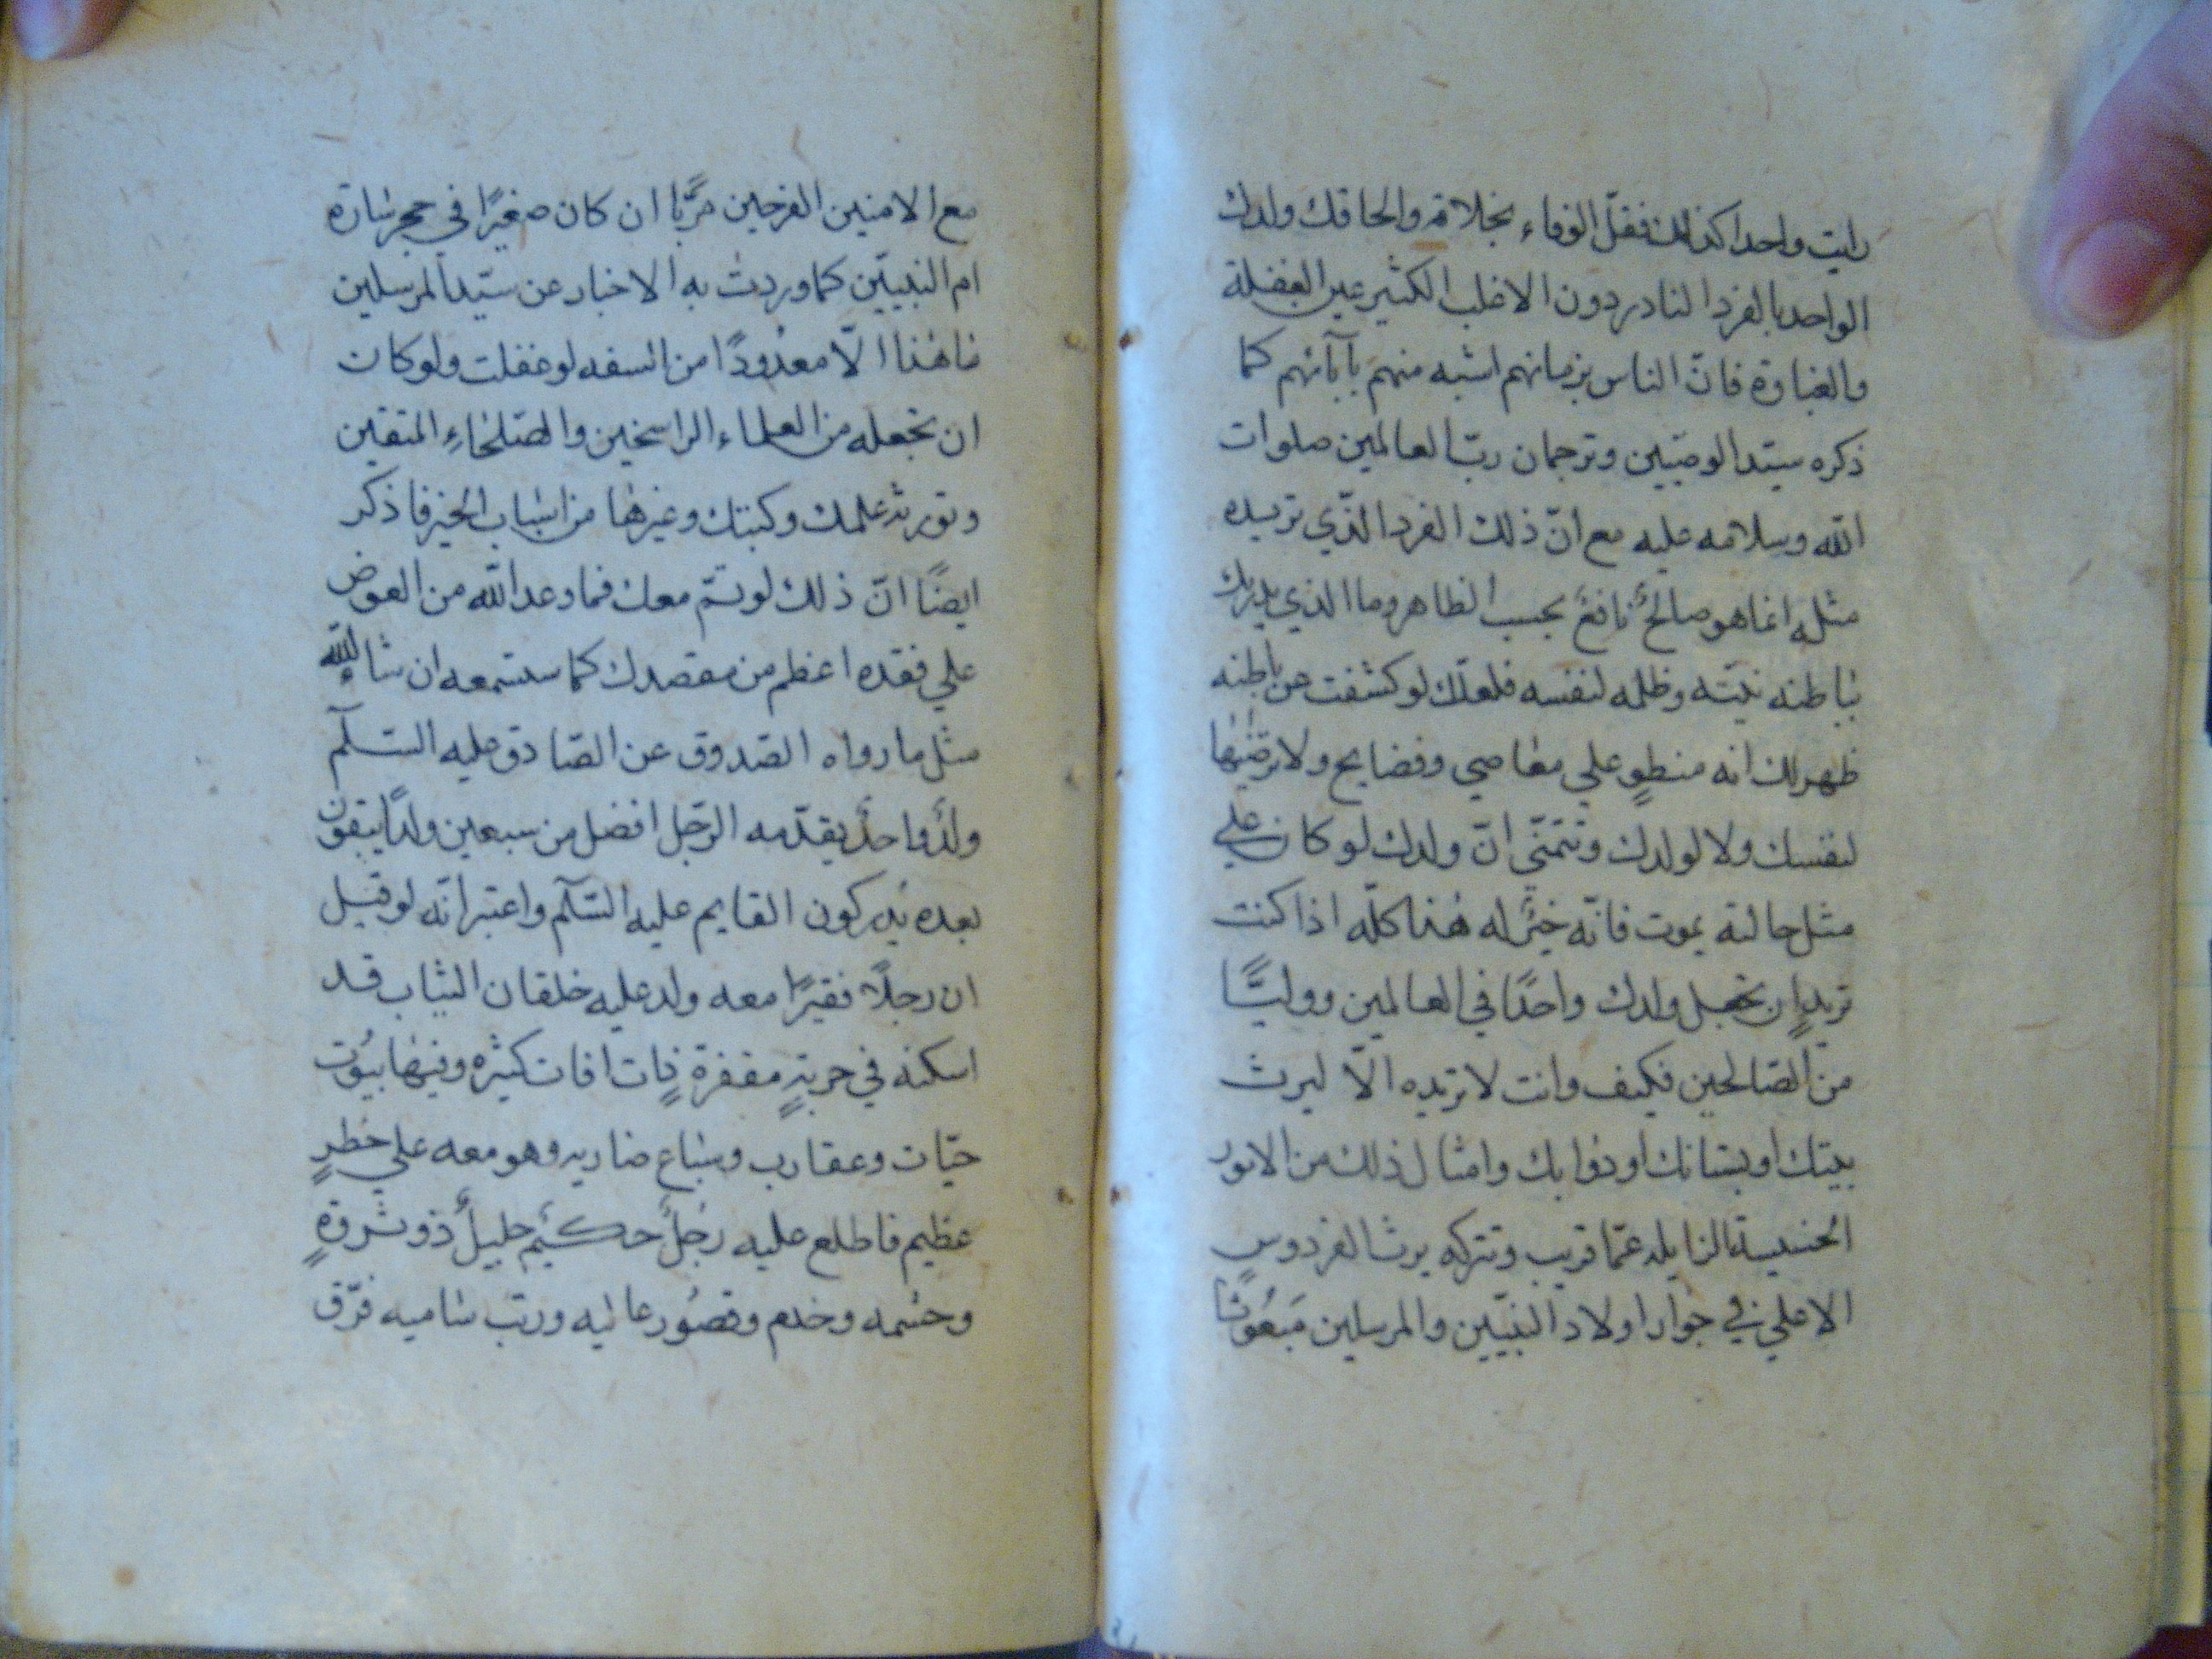 رايت واحدا كذلك فقلّ الوفاء بخلافه والحاقك ولدك
الواحد بالفرد النادر دون الاغلب الكثير عين الغفلة
والغباوة فانّ الناس بزمانهم اشبه منهم بآبآئهم كما
ذكره سيّد الوصيّين وترجمان ربّ العالمين صلوات
اللّه وسلامه عليه مع انّ ذلك الفرد الّذي تريده
مثله انما هو صالحٌ نافعٌ بحسب الظاهر وما الذي يدريك
بباطنه نيّته وظلمه لنفسه فلعلّك لو كشفت عن باطنه
ظهر لك انه منطوٍ علي معاصي وفضايح ولا ترضيٰها
لنفسك ولا لولدك وتتمنّي انّ ولدك لو كان علي
مثل حالته يموت فانّه خيرٌ له هذا كلّه اذا كنت
تريد ان تجعل ولدك واحدًا في العالمين ووليًّا
من الصّالحين فكيف وانت لا تريده الّا ليرث
بيتك او بستانك او دوابك وامثال ذلك من الامور
الخسيسة الزايله عمّا قريب وتتركه يرث الفردوس
الاعلي في جوار اولاد النبيّين والمرسلين مَبعُوثا
مع الامنين الفرحين مربًّا ان كان صغيرًا في حجر سارة
ام النبييّن كما وردت به الاخبار عن سيّد المرسلين
فاهذا الّا معدُودًا من السفه لو عقلت ولو كان
ان تجعله من العلماء الراسخين والصّلحاءِ المتقين
وتورثه علمك وكتبك وغيرها من اسباب الخير فاذكر
ايضًا انّ ذلك لو تمّ معك فما وعد اللّه من العوض
علي فقده اعظم من مقصدك كما ستسمعه ان شاء اللّه
مثل ما رواه الصّدوق عن الصّادق عليه السّلآم
ولدٌ واحدٌ يقدّمه الرّجل افضل من سبعين ولدًا يبقون
بعده يُدركون القايم عليه السّلآم واعتبر انّه لو قيل
ان رجلًا فقيرًا معه ولد عليه خلقان الثياب قد
اسكنه في خربةٍ مقفرة ذات افات كثيره وفيها بيُوت
حيّات وعقارب وسباع ضاريه وهو معه علي خطرٍ
عظيم فاطلع عليه رجُلٌ حكيمٌ جليلٌ ذو ثروةٍ
وحشمه وخدم وقصُور عاليه ورتب ساميه فرّق